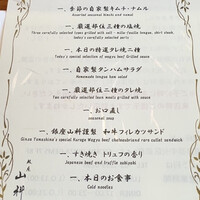 一、季節の自家製キムチ・ナムル
Assorted seasonal kimchi and namul
一、厳選部位三種の塩焼
Three carefully selected types grilled with salt - wild fragile tongue, skirt steak, today's carefully selected parts
一、本日の特選タレ焼二種
Today's special selection of wagyu beef grilled with sauce
一、自家製タンハムサラダ
Homemade tongue ham salad
一、厳選部位のタレ焼二種
Two carefully selected lean meats grilled with sauce
一、お口直し
seasonal soup
一、銀座山科謹製 和牛フィレカツサンド
Ginza Yamashina's special Kuroge Wagyu beef chateaubriand rare cutlet sandwich
一、すき焼き トリュフの香り
Japanese beef and truffle sukiyaki
一、本日のお食事
Cold noodles